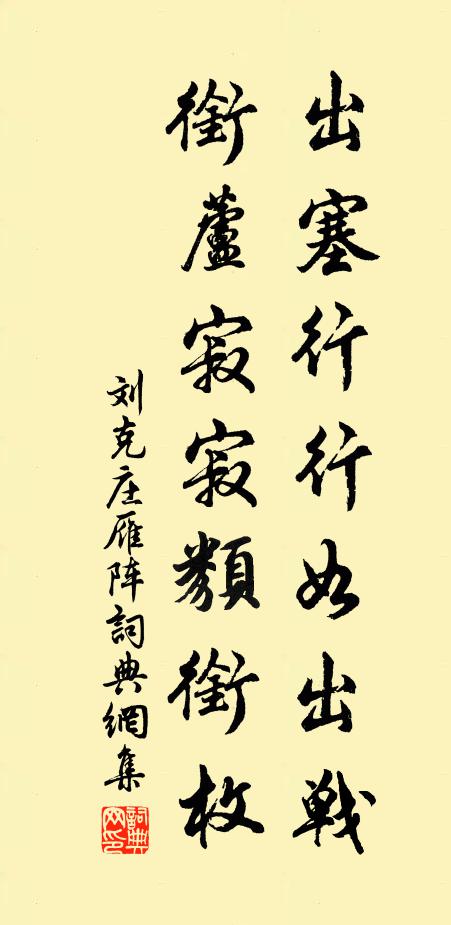 出塞行行如出戰
銜蘆寂寂類銜枚
刘克庄雁阵詞典網集
詞典網印